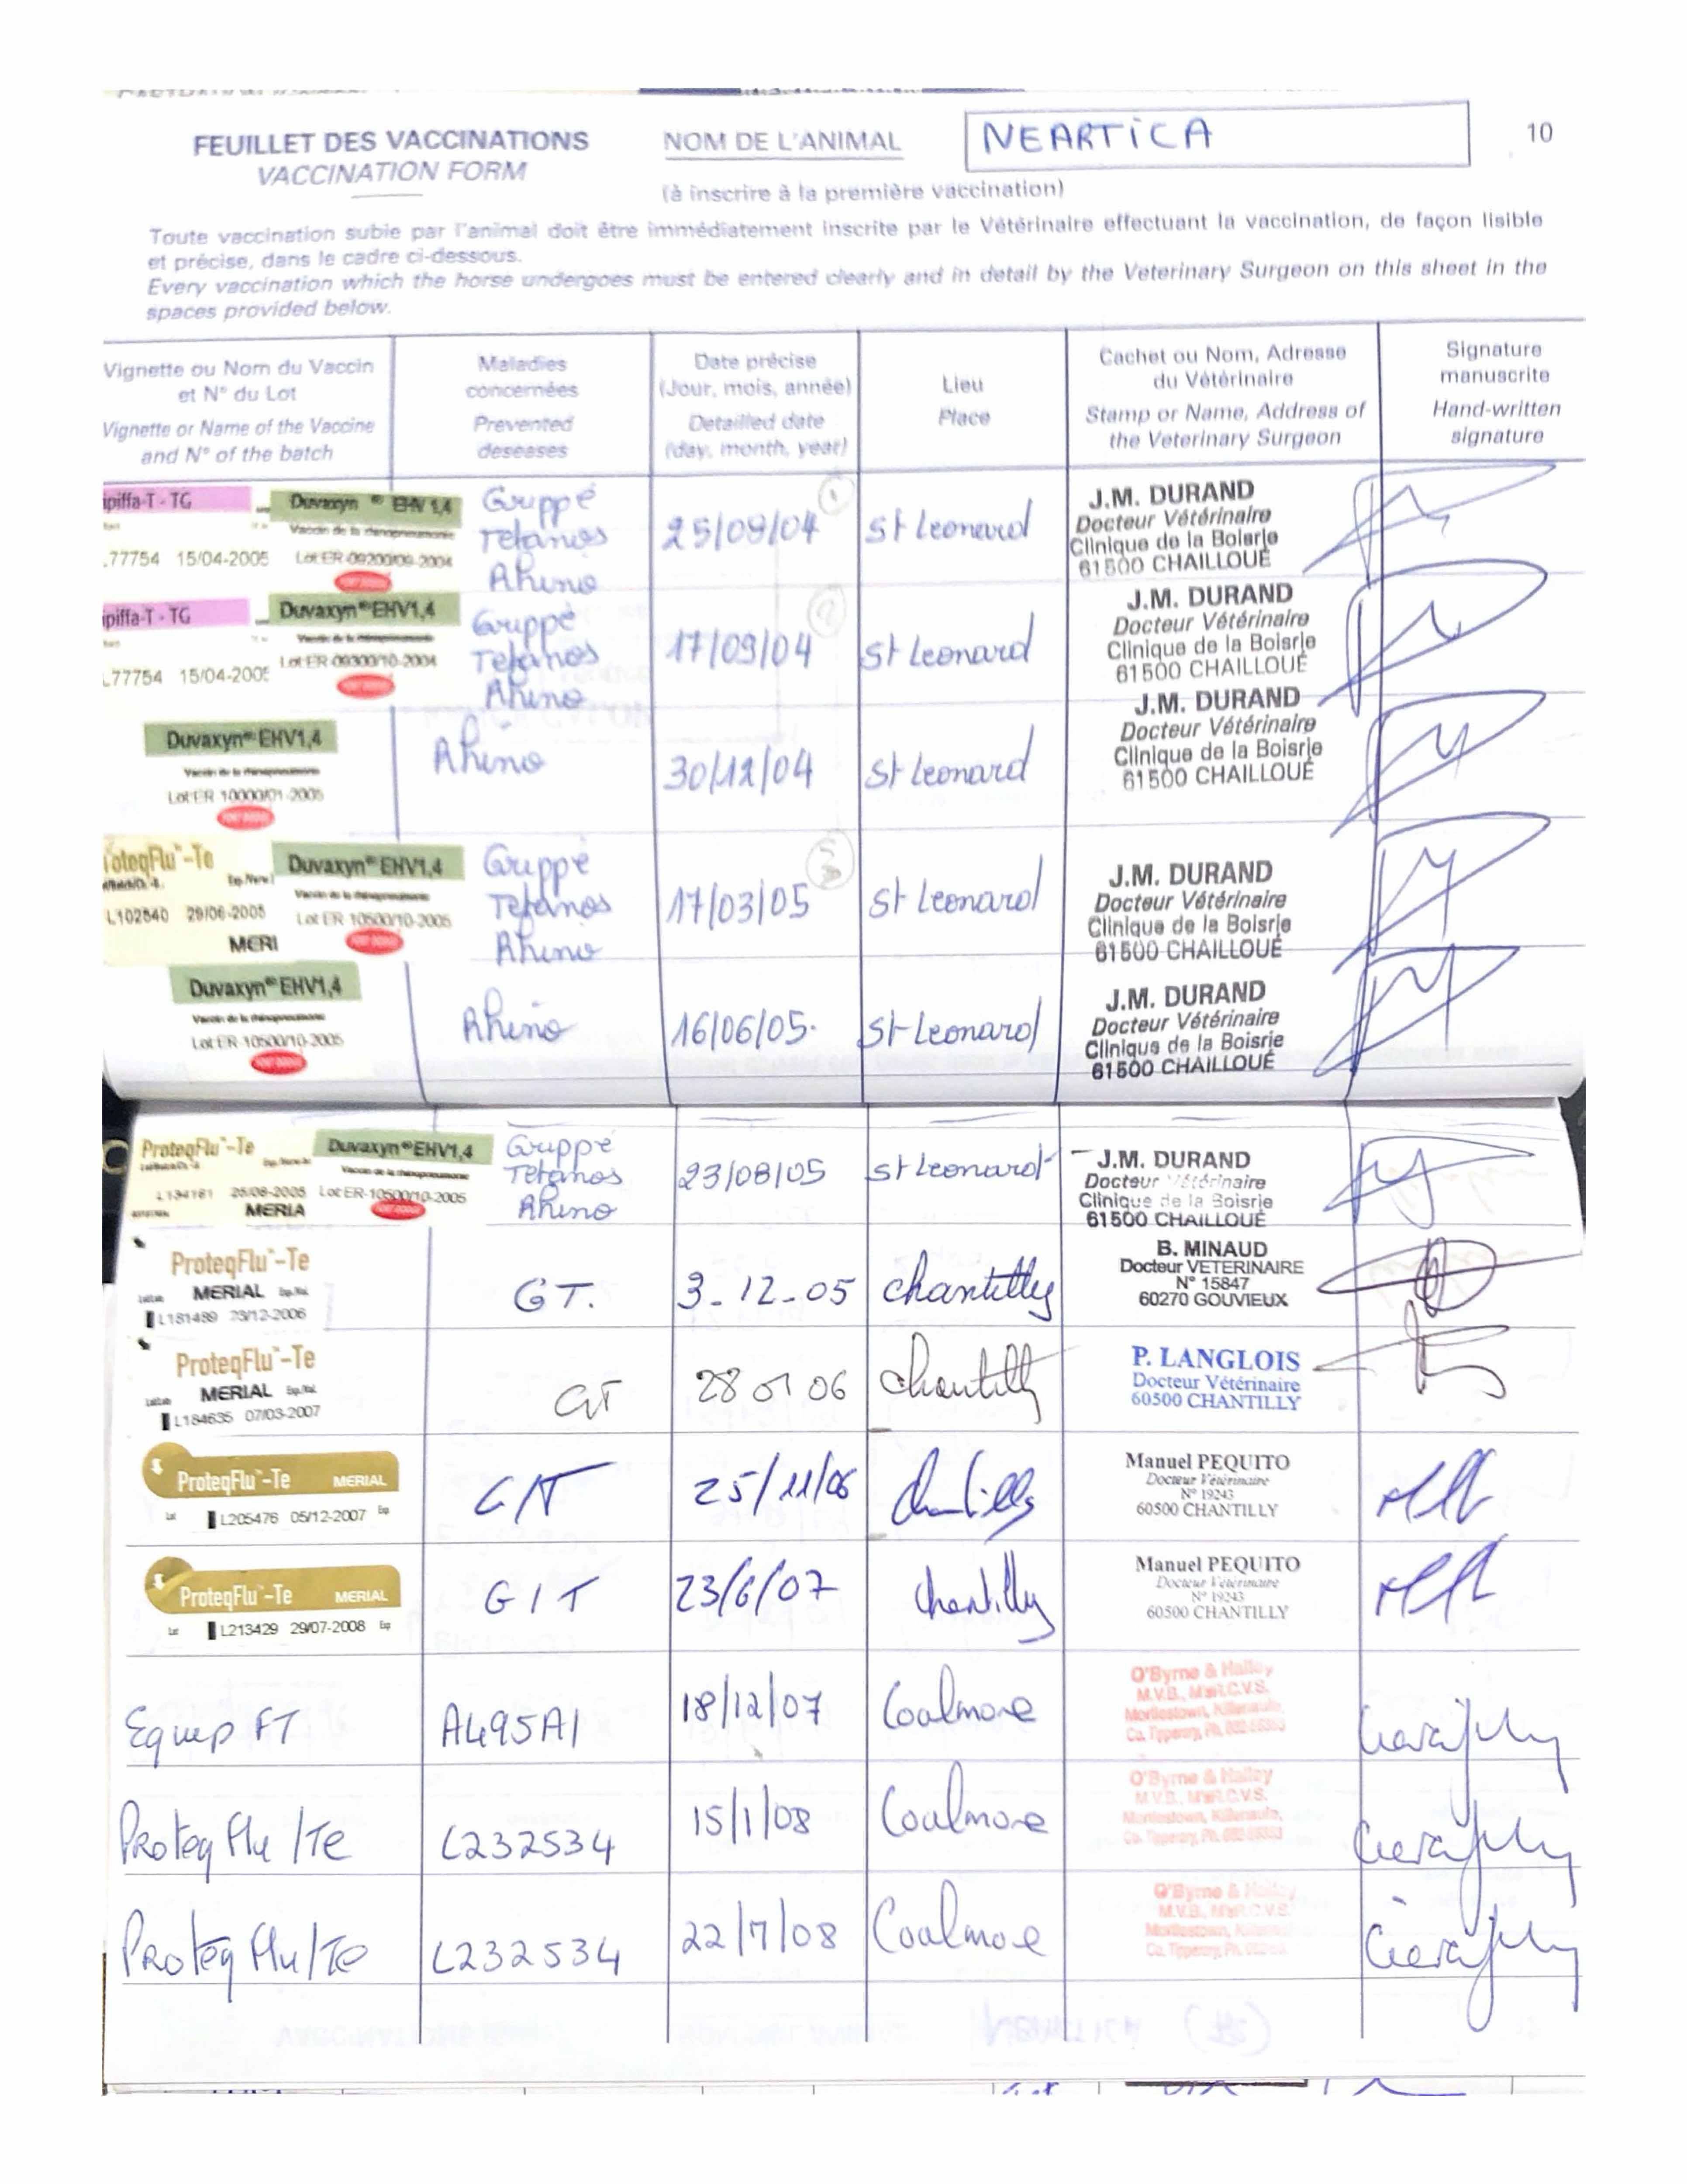 FEUILLET DES VACCINATIONS
VACCINATION FORM
NOM DE L'ANIMAL
NEARTiCA
10
(à inscrire à la première vaccination)
Toute vaccination subie par l'animal doit être immédiatement inscrite par le Vétérinaire effectuant la vaccination, de façon lisible
et précise, dans le cadre ci-dessous.
Every vaccination which the horse undergoes must be entered clearly and in detail by the Veterinary Surgeon on this sheet in the
spaces provided below.
Vignette ou Nom du Vaccin
et N° du Lot
Vignette or Name of the Vaccine
and N° of the batch
Maladies
concernées
Prevented
deseases
Date précise
(Jour, mois, année)
Detailled date
(day, month, year)
Lieu
Place
Cachet ou Nom, Adresse
du Vétérinaire
Stamp or Name, Address of
the Veterinary Surgeon
Signature
manuscrite
Hand-written
signature
ipiffa-T - TG
77754 15/04-2005
Duvaxyn® EHV 1,4
Vaccin de la rhinopneumonie
Lot ER-09200/09-2004
Grippé
Tetanos
Rhino
25/08/04
1
St Leonard
J.M. DURAND
Docteur Vétérinaire
Clinique de la Boisrie
61500 CHAILLOUÉ
piffa-T - TG
L77754 15/04-2005
Duvaxyn® EHV1,4
Vaccin de la rhinopneumonie
Lot ER 09300/10-2004
Grippé
Tetanos
Rhino
17/09/04
2
St Leonard
J.M. DURAND
Docteur Vétérinaire
Clinique de la Boisrie
61500 CHAILLOUÉ
Duvaxyn® EHV1,4
Vaccin de la rhinopneumonie
Lot ER 10000/01-2005
Rhino
30/12/04
St Leonard
J.M. DURAND
Docteur Vétérinaire
Clinique de la Boisrie
61500 CHAILLOUÉ
roteqFlu™-Te
L102540 29/06-2005
MERI
Duvaxyn® EHV1,4
Vaccin de la rhinopneumonie
Lot ER 10500/10-2005
Grippé
Tetanos
Rhino
17/03/05
3
St Leonard
J.M. DURAND
Docteur Vétérinaire
Clinique de la Boisrie
61500 CHAILLOUÉ
Duvaxyn® EHV1,4
Vaccin de la rhinopneumonie
Lot ER-10500/10-2005
Rhino
16/06/05.
St Leonard
J.M. DURAND
Docteur Vétérinaire
Clinique de la Boisrie
61500 CHAILLOUÉ
ProteqFlu™-Te
L134161 25/08-2005
MERIA
Duvaxyn® EHV1,4
Vaccin de la rhinopneumonie
Lot ER-10500/10-2005
Grippé
Tetanos
Rhino
23/08/05
St Leonard
J.M. DURAND
Docteur Vétérinaire
Clinique de la Boisrie
61500 CHAILLOUÉ
ProteqFlu™-Te
MERIAL
L181489 23/12-2006
GT.
3-12-05
Chantilly
B. MINAUD
Docteur VETERINAIRE
N° 15847
60270 GOUVIEUX
ProteqFlu™-Te
MERIAL
L184635 07/03-2007
GT
28 01 06
Chantilly
P. LANGLOIS
Docteur Vétérinaire
60500 CHANTILLY
ProteqFlu™-Te MERIAL
Lot L205476 05/12-2007 Exp
G/T
25/11/06
Chantilly
Manuel PEQUITO
Docteur Vétérinaire
N° 19243
60500 CHANTILLY
ProteqFlu™-Te MERIAL
Lot L213429 29/07-2008 Exp
G/T
23/6/07
Chantilly
Manuel PEQUITO
Docteur Vétérinaire
N° 19243
60500 CHANTILLY
Equip FT
A495A1
18/12/07
Coolmore
O'Byrne & Halley
M.V.B., M.R.C.V.S.
Mortlestown, Killenaule,
Co. Tipperary, Ph.
Proteq Flu/Te
L232534
15/1/08
Coolmore
O'Byrne & Halley
M.V.B., M.R.C.V.S.
Mortlestown, Killenaule,
Co. Tipperary, Ph.
Proteq Flu/Te
L232534
22/7/08
Coolmore
O'Byrne & Halley
M.V.B., M.R.C.V.S.
Mortlestown, Killenaule,
Co. Tipperary, Ph.